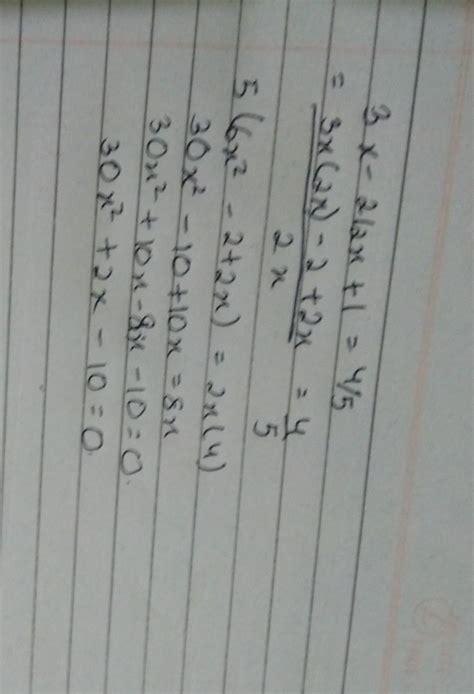 3x - 2/2x + 1 = 4/5
= 3x(2x) - 2 + 2x / 2x = 4/5
5(6x² - 2 + 2x) = 2x(4)
30x² - 10 + 10x = 8x
30x² + 10x - 8x - 10 = 0
30x² + 2x - 10 = 0